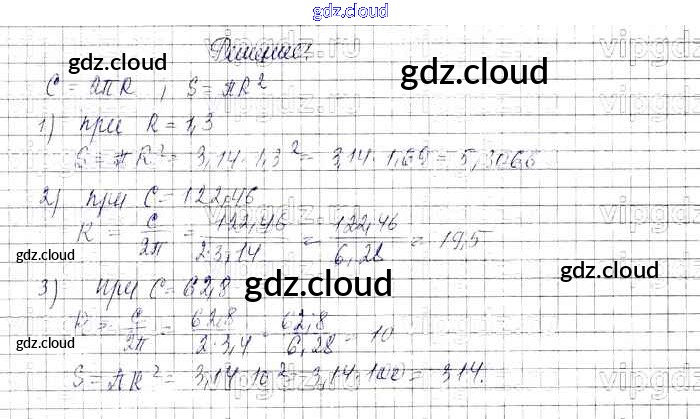 gdz.cloud
Решение:
gdz.cloud
vipgdz.ru
gdz.cloud
C = 2πR , S = πR²
1) при R = 1,3
S = πR² = 3,14 · 1,3² = 3,14 · 1,69 = 5,3066
2) при C = 122,46
R = C/2π = 122,46/2·3,14 = 122,46/6,28 = 19,5
gdz.cloud
gdz.cloud
3) при C = 62,8
gdz.cloud
R = C/2π = 62,8/2·3,4 = 62,8/6,28 = 10
gdz.cloud
S = πR² = 3,14·10² = 3,14·100 = 314.